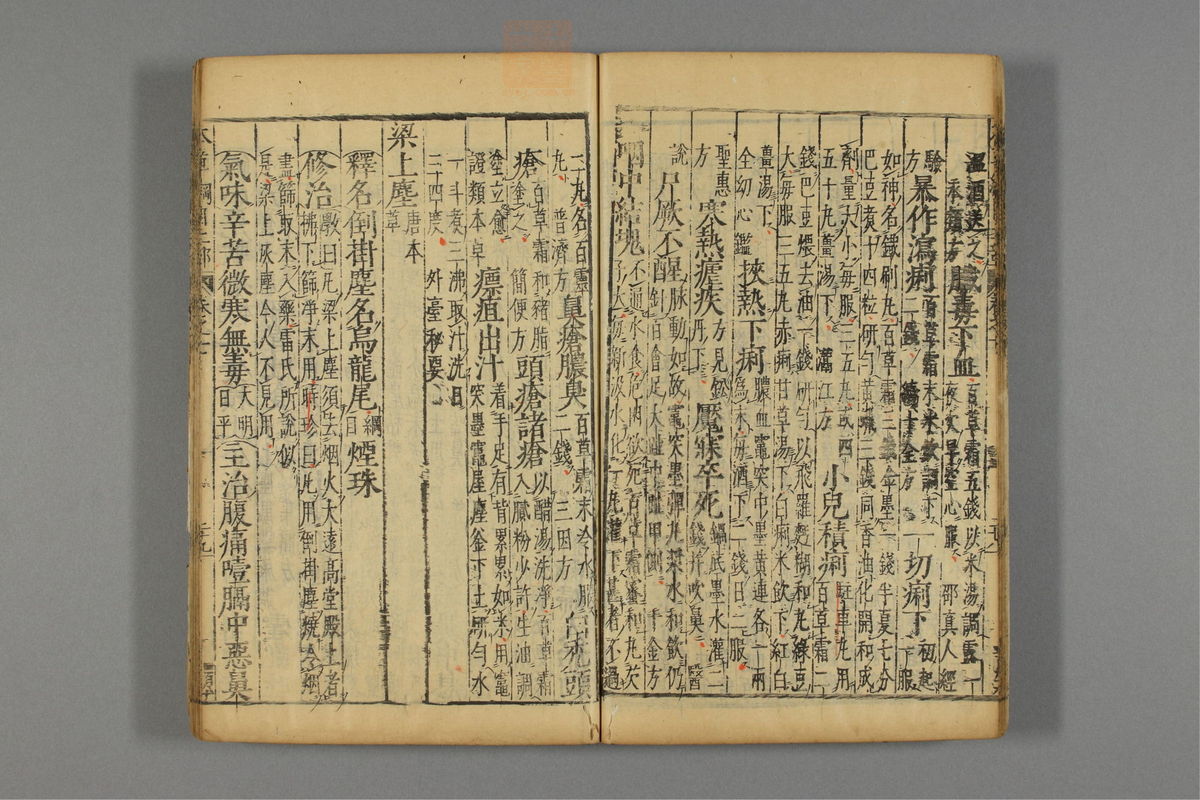 溫酒送之
永類方
臟毒下血
百草霜五錢以米湯調露一
夜次早空心服 邵真人經
驗方
暴作瀉痢
百草霜末米飲調下
二錢 續十全方
一切痢下
初起一服
如神名鐵刷丸百草霜三錢金墨一錢半夏七分
巴豆煮十四粒研勻黃蠟三錢同香油化開和成
劑量大小每服三五丸或四
五十丸薑湯下 瀟江方
小兒積痢
駐車丸用
百草霜二
錢巴豆煨去油一錢研勻以飛羅麪糊和丸綠豆
大每服三五丸赤痢甘草湯下白痢米飲下紅白
薑湯下
全幼心鑑
挾熱下痢
膿血竈突中墨黃連各一兩
為末每酒下二錢日二服
聖惠
方
寒熱瘧疾
方見鉛
丹下
魘寐卒死
鍋底墨水灌二
錢并吹鼻 醫
說
尸厥不醒
脈動如故竈突墨彈丸漿水和飲仍
針百會足大趾中趾甲側 千金方
咽中結塊
不通水食危困欲死百草霜蜜和丸芡
子大每新汲水化一丸灌下甚者不過
二丸名百靈
丸 普濟方
鼻瘡膿臭
百草霜末冷水服
二錢 三因方
白禿頭
瘡
百草霜和豬脂
塗之 簡便方
頭瘡諸瘡
以醋湯洗淨百草霜
入膩粉少許生油調
塗立愈
證類本草
瘭疽出汁
着手足肩背累累如米用竈
突墨竈屋塵釜下土研勻水
一斗煮三沸取汁洗日
三四度 外臺秘要
梁上塵
唐本
草
釋名倒掛塵名烏龍尾
綱目
煙珠
修治
斆曰凡梁上塵須去烟火大遠高堂殿上者
拂下篩淨末用時珍曰凡用倒掛塵燒令烟
盡篩取末入藥雷氏所說似
是梁上灰塵今人不見用
氣味辛苦微寒無毒
大明
曰平
主治腹痛噎膈中惡鼻